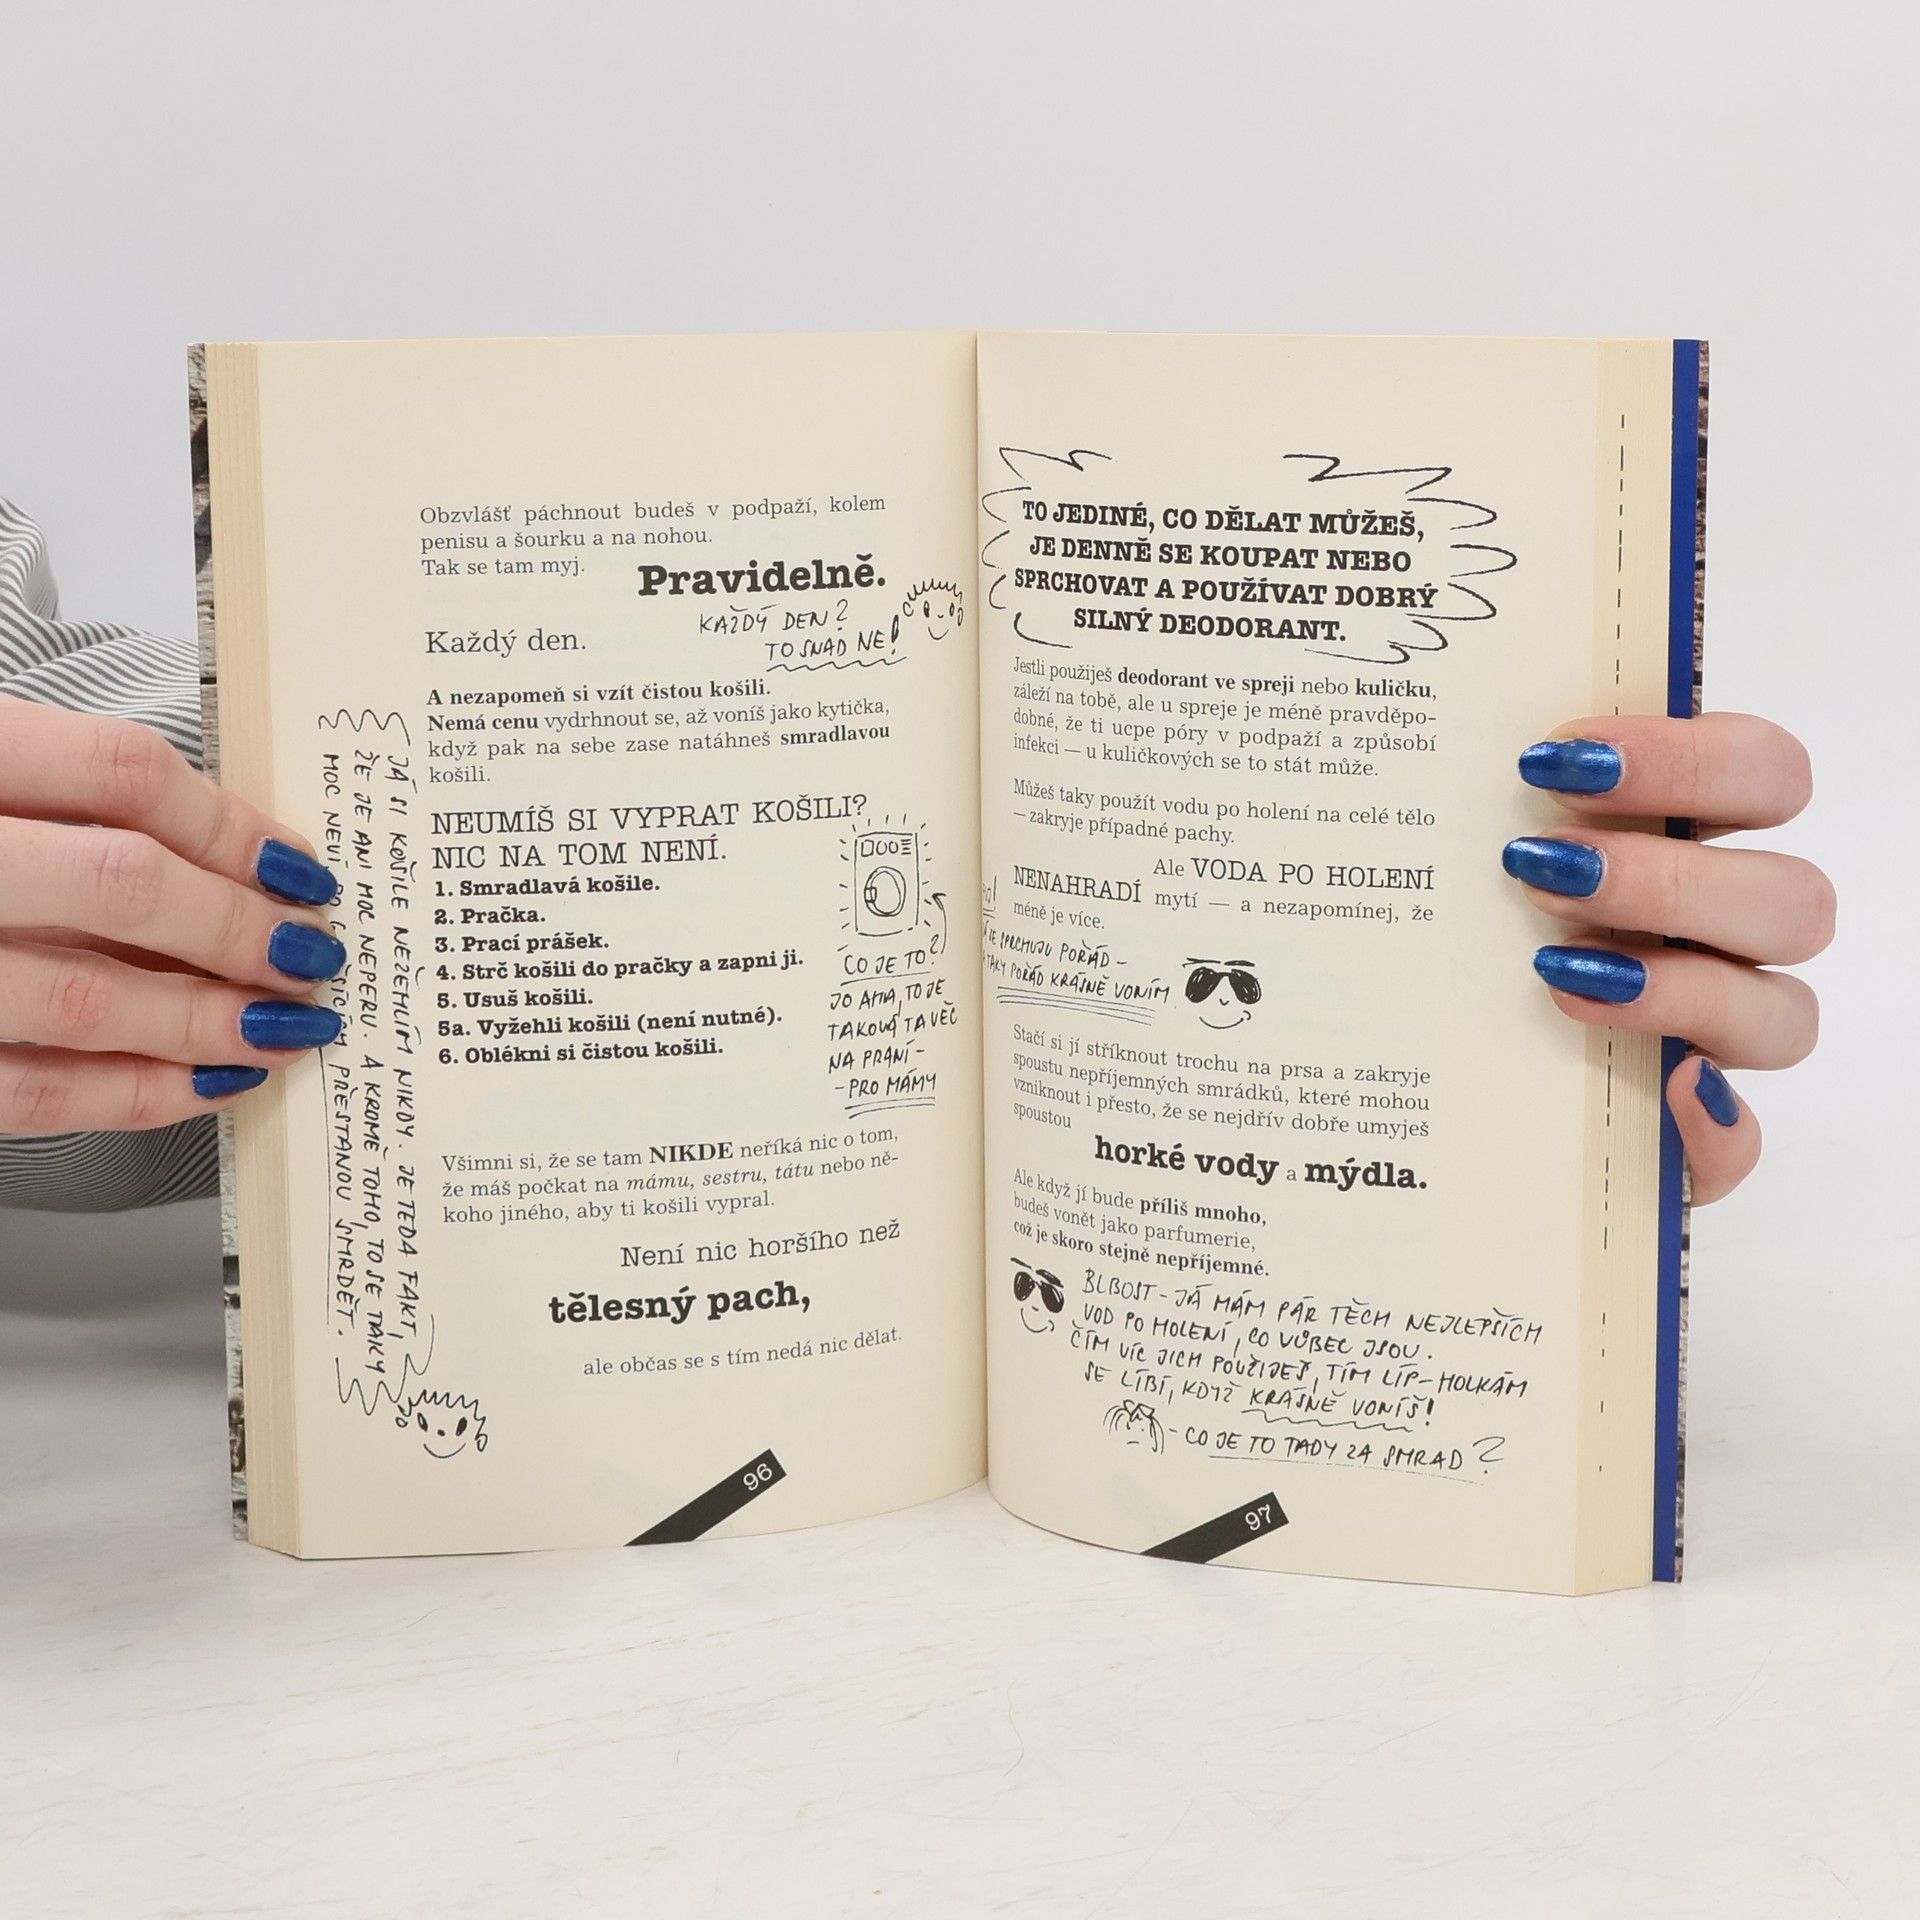 Obzvlášť páchnout budeš v podpaží, kolem
penisu a šourku a na nohou.
Tak se tam myj.
Pravidelně.
KAŽDÝ DEN?
TO SNAD NE!
Každý den.
A nezapomeň si vzít čistou košili.
Nemá cenu vydrhnout se, až voníš jako kytička,
když pak na sebe zase natáhneš smradlavou
košili.
NEUMÍŠ SI VYPRAT KOŠILI?
NIC NA TOM NENÍ.
1. Smradlavá košile.
2. Pračka.
3. Prací prášek.
4. Strč košili do pračky a zapni ji.
5. Usuš košili.
5a. Vyžehli košili (není nutné).
6. Oblékni si čistou košili.
CO JE TO?
JO AHA, TO JE
TAKOVÁ TA VĚC
NA PRANÍ -
- PRO MÁMY
JÁ SI KOŠILE NEŽEHLÍM NIKDY. JE TEDA FAKT,
ŽE JE ANI MOC NEPERU. A KROMĚ TOHO, TO SE TAKY
MOC NEVÍ, PŘESTANOU SMRDĚT.
Všimni si, že se tam NIKDE neříká nic o tom,
že máš počkat na mámu, sestru, tátu nebo ně-
koho jiného, aby ti košili vypral.
Není nic horšího než
tělesný pach,
ale občas se s tím nedá nic dělat.
96
TO JEDINÉ, CO DĚLAT MŮŽEŠ,
JE DENNĚ SE KOUPAT NEBO
SPRCHOVAT A POUŽÍVAT DOBRÝ
SILNÝ DEODORANT.
Jestli použiješ deodorant ve spreji nebo kuličku,
záleží na tobě, ale u spreje je méně pravděpo-
dobné, že ti ucpe póry v podpaží a způsobí
infekci — u kuličkových se to stát může.
Můžeš taky použít vodu po holení na celé tělo
— zakryje případné pachy.
Ale VODA PO HOLENÍ
NENAHRADÍ mytí — a nezapomínej, že
méně je více.
SE SPRCHUJU POŘÁD -
TAKY POŘÁD KRÁSNĚ VONÍM.
Stačí si jí stříknout trochu na prsa a zakryje
spoustu nepříjemných smrádků, které mohou
vzniknout i přesto, že se nejdřív dobře umyješ
spoustou
horké vody a mýdla.
Ale když jí bude příliš mnoho,
budeš vonět jako parfumerie,
což je skoro stejně nepříjemné.
BLBOST - JÁ MÁM PÁR TĚCH NEJLEPŠÍCH
VOD PO HOLENÍ, CO VŮBEC JSOU.
ČÍM VÍC JICH POUŽIJEŠ, TÍM LÍP - HOLKÁM
SE LÍBÍ, KDYŽ KRÁSNĚ VONÍŠ!
- CO JE TO TADY ZA SMRAD?
97